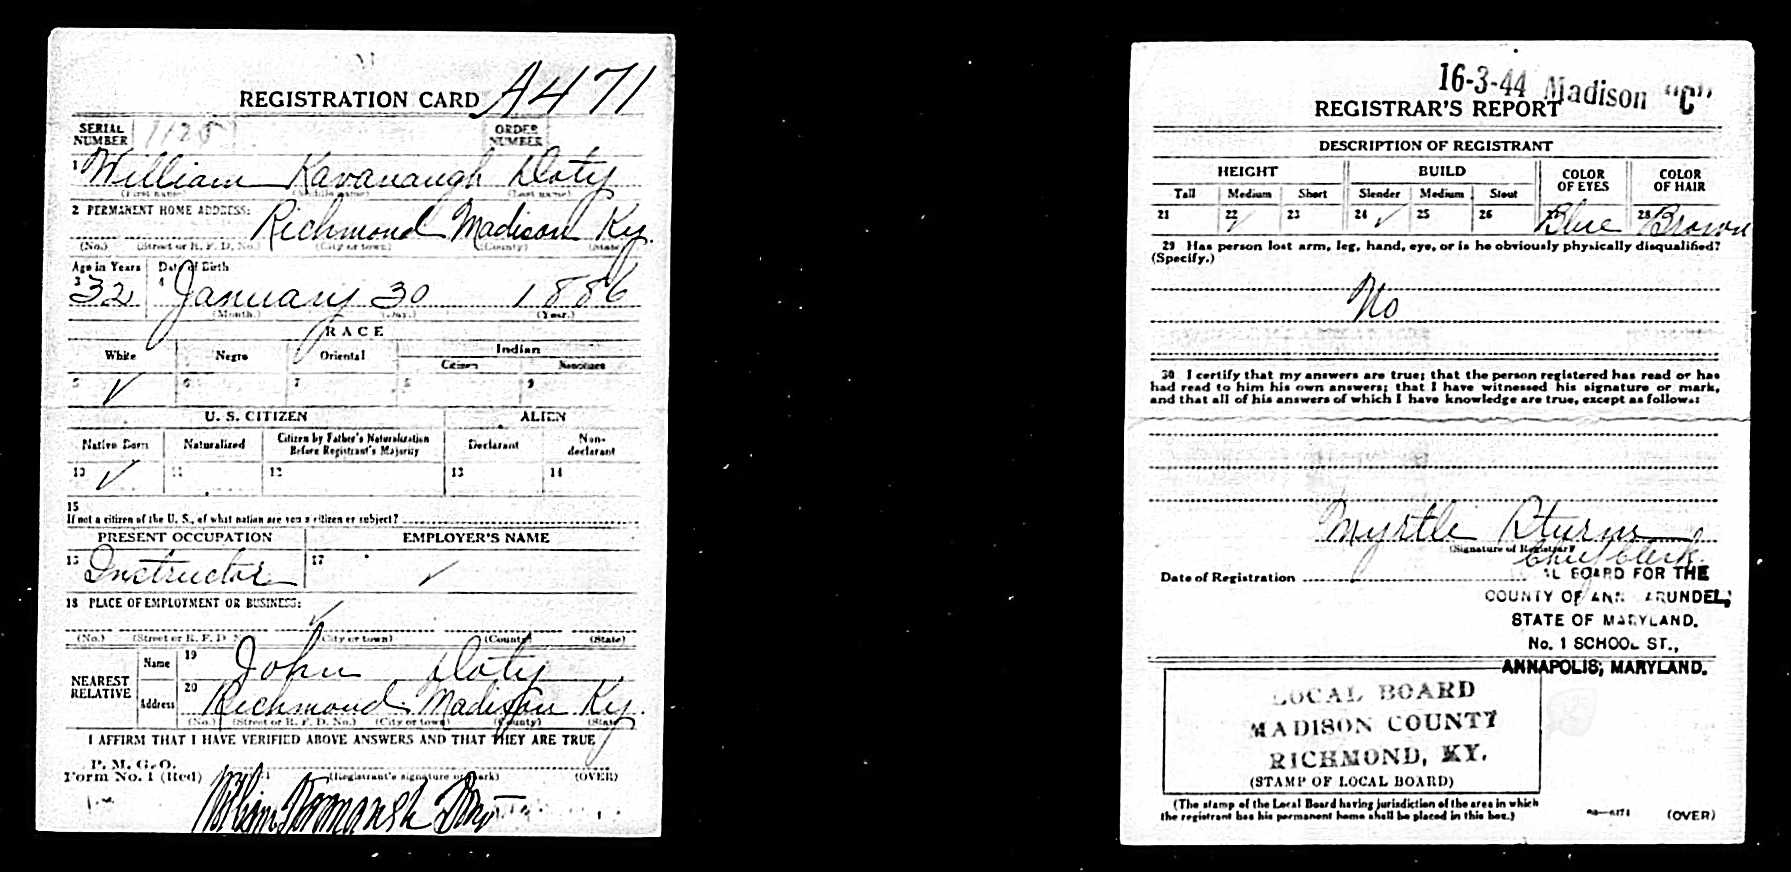 REGISTRATION CARD A471
SERIAL NUMBER 1125 ORDER NUMBER
1 William Kavanaugh Doty
(First name) (Middle name) (Last name)
2 PERMANENT HOME ADDRESS:
Richmond Madison Ky.
(No.) (Street or R. F. D. No.) (City or town) (County) (State)
Age in Years Date of Birth
3 32 4 January 30 1886
(Month.) (Day.) (Year.)
RACE
White Negro Oriental Indian
Citizen Noncitizen
5 ✓ 6 7 8 9
U. S. CITIZEN ALIEN
Native Born Naturalized Citizen by Father's Naturalization Before Registrant's Majority Declarant Non-declarant
10 ✓ 11 12 13 14
15
If not a citizen of the U. S., of what nation are you a citizen or subject?
PRESENT OCCUPATION EMPLOYER'S NAME
Instructor 17 ✓
18 PLACE OF EMPLOYMENT OR BUSINESS: ✓
(No.) (Street or R. F. D. No.) (City or town) (County) (State)
NEAREST RELATIVE
Name 19 John Doty
Address 20 Richmond Madison Ky.
(No.) (Street or R. F. D. No.) (City or town) (County) (State)
I AFFIRM THAT I HAVE VERIFIED ABOVE ANSWERS AND THAT THEY ARE TRUE
P. M. G. O.
Form No. 1 (Red) (Registrant's signature or mark) (OVER)
William Kavanaugh Doty
16-3-44 Madison "C"
REGISTRAR'S REPORT
DESCRIPTION OF REGISTRANT
HEIGHT BUILD COLOR OF EYES COLOR OF HAIR
Tall Medium Short Slender Medium Stout
21 22 ✓ 23 24 ✓ 25 26 27 Blue 28 Brown
29 Has person lost arm, leg, hand, eye, or is he obviously physically disqualified?
(Specify.)
No
30 I certify that my answers are true; that the person registered has read or has
had read to him his own answers; that I have witnessed his signature or mark,
and that all of his answers of which I have knowledge are true, except as follows:
Myrtle Sturm
(Signature of Registrar)
Chief Clerk
Date of Registration
BOARD FOR THE
COUNTY OF ANN ARUNDEL,
STATE OF MARYLAND.
No. 1 SCHOOL ST.,
ANNAPOLIS, MARYLAND.
LOCAL BOARD
MADISON COUNTY
RICHMOND, KY.
(STAMP OF LOCAL BOARD)
(The stamp of the Local Board having jurisdiction of the area in which
the registrant has his permanent home shall be placed in this box.)
(OVER)